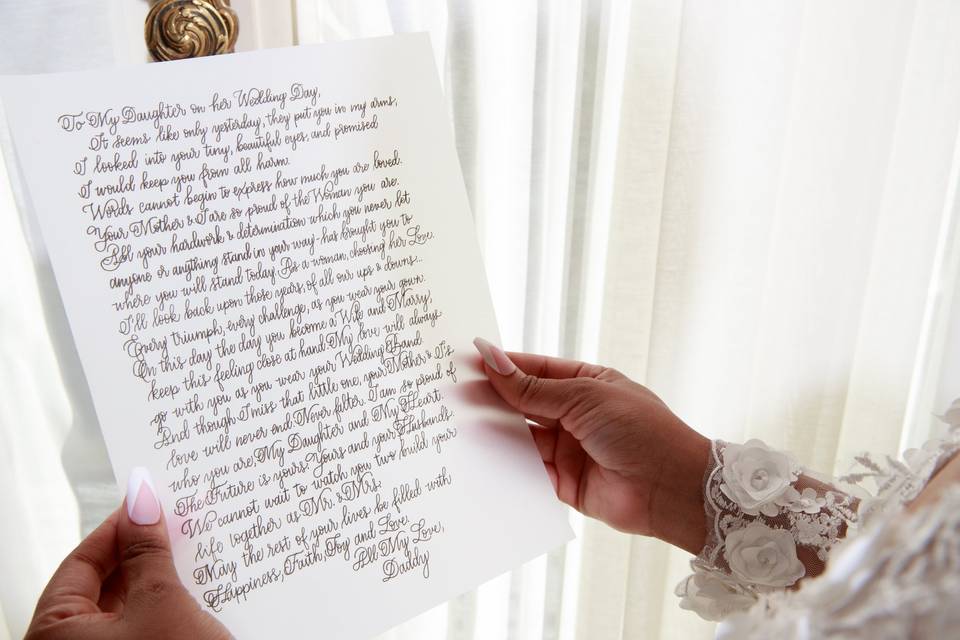 To My Daughter on her Wedding Day,
It seems like only yesterday, they put you in my arms,
I looked into your tiny, beautiful eyes, and promised
I would keep you from all harm.
Words cannot begin to express how much you are loved.
Your Mother & I are so proud of the Woman you are.
All your hardwork & determination which you never let
anyone or anything stand in your way - has brought you to
where you will stand today. As a woman, choosing her Love.
I'll look back upon those years, of all our ups & downs...
Every triumph, every challenge, as you wear your gown.
On this day the day you become a Wife and Marry,
keep this feeling close at hand. My love will always
go with you as you wear your Wedding Band
And though I miss that little one, your Mother & I's
love will never end. Never filter. I am so proud of
who you are, My Daughter and My Heart
The Future is yours. Yours and your Husbands.
We cannot wait to watch you two build your
life together as Mr. & Mrs.
May the rest of your lives be filled with
Happiness, Faith, Joy and Love
All My Love,
Daddy